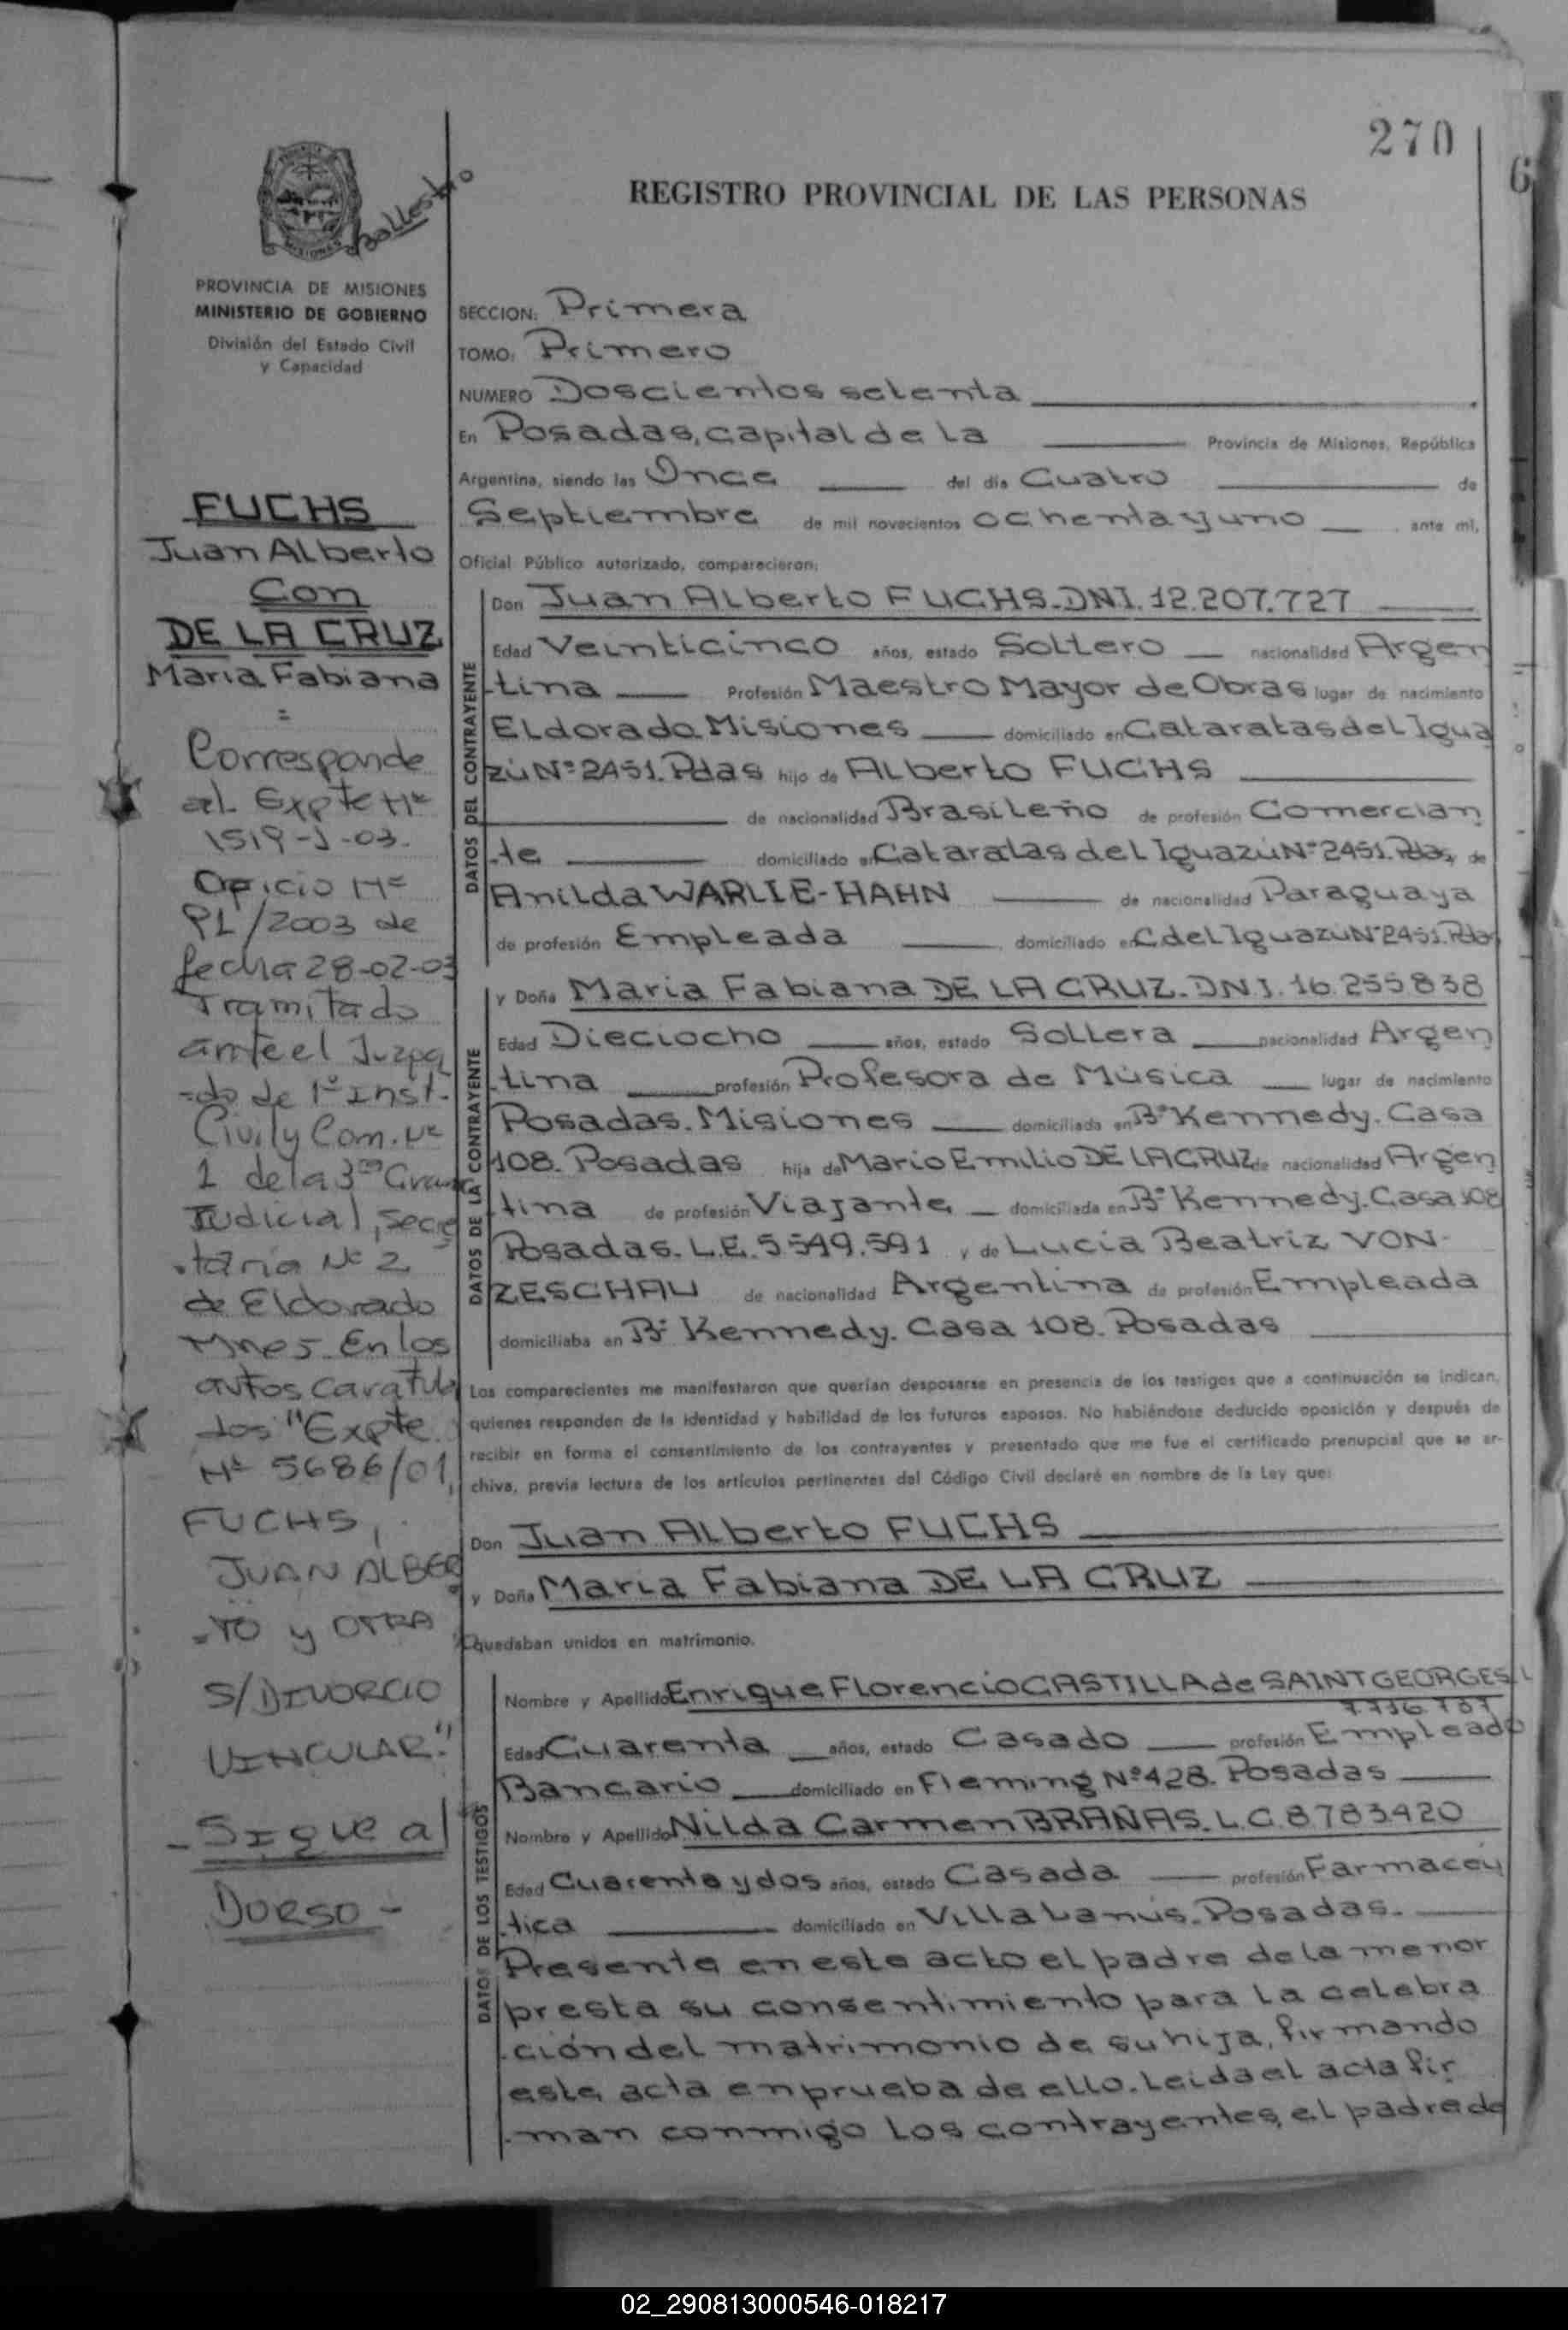 270
6
REGISTRO PROVINCIAL DE LAS PERSONAS
PROVINCIA DE MISIONES
MINISTERIO DE GOBIERNO
División del Estado Civil
y Capacidad
FUCHS
Juan Alberto
Con
DE LA CRUZ
Maria Fabiana
=
Corresponde
al Expte Nº
1519-J-03.
Oficio Nº
PL/2003 de
fecha 28-02-03
Tramitado
ante el Juzga
-do de 1º Inst.
Civil y Com. Nº
1 de la 3ra Circuns
Judicial, Secre
-taria Nº 2
de Eldorado
Mnes. En los
autos caratula
dos "Expte
Nº 5686/01,
FUCHS,
JUAN ALBER
-TO y OTRA
S/DIVORCIO
VINCULAR."
- Sigue al
Dorso -
SECCION: Primera
TOMO: Primero
NUMERO Doscientos setenta
En Posadas, capital de la Provincia de Misiones, República
Argentina, siendo las Once del día Cuatro de
Septiembre de mil novecientos ochenta y uno ante mí,
Oficial Público autorizado, comparecieron:
DATOS DEL CONTRAYENTE
Don Juan Alberto FUCHS. DNI. 12.207.727
Edad Veinticinco años, estado Soltero nacionalidad Argen
-tina Profesión Maestro Mayor de Obras lugar de nacimiento
Eldorado. Misiones domiciliado en Cataratas del Igua
zú Nº 2451. Pdas hijo de Alberto FUCHS
de nacionalidad Brasileño de profesión Comercian
-te domiciliado en Cataratas del Iguazú Nº 2451. Pdas, de
Anilda WARLIE-HAHN de nacionalidad Paraguaya
de profesión Empleada domiciliado en C. del Iguazú Nº 2451. Pdas
DATOS DE LA CONTRAYENTE
y Doña Maria Fabiana DE LA CRUZ. DNI. 16.255838
Edad Dieciocho años, estado Soltera nacionalidad Argen
-tina profesión Profesora de Música lugar de nacimiento
Posadas. Misiones domiciliada en Bº Kennedy. Casa
108. Posadas hija de Mario Emilio DE LA CRUZ de nacionalidad Argen
-tina de profesión Viajante domiciliada en Bº Kennedy. Casa 108
Posadas. L.E. 5.549.591 y de Lucia Beatriz VON-
ZESCHAU de nacionalidad Argentina de profesión Empleada
domiciliaba en Bº Kennedy. Casa 108. Posadas
Los comparecientes me manifestaron que querían desposarse en presencia de los testigos que a continuación se indican,
quienes responden de la identidad y habilidad de los futuros esposos. No habiéndose deducido oposición y después de
recibir en forma el consentimiento de los contrayentes y presentado que me fue el certificado prenupcial que se ar-
chiva, previa lectura de los artículos pertinentes del Código Civil declaré en nombre de la Ley que:
Don Juan Alberto FUCHS
y Doña Maria Fabiana DE LA CRUZ
quedaban unidos en matrimonio.
DATOS DE LOS TESTIGOS
Nombre y Apellido Enrique Florencio CASTILLA de SAINT GEORGES. L
7.716.737
Edad Cuarenta años, estado Casado profesión Empleado
Bancario domiciliado en Fleming Nº 428. Posadas
Nombre y Apellido Nilda Carmen BRAÑAS. L.C. 8783420
Edad Cuarenta y dos años, estado Casada profesión Farmaceú
-tica domiciliado en Villa Lanús. Posadas.
Presente en este acto el padre de la menor
presta su consentimiento para la celebra
-ción del matrimonio de su hija, firmando
este acta en prueba de ello. Leida el acta fir
-man conmigo los contrayentes, el padre de
02_290813000546-018217